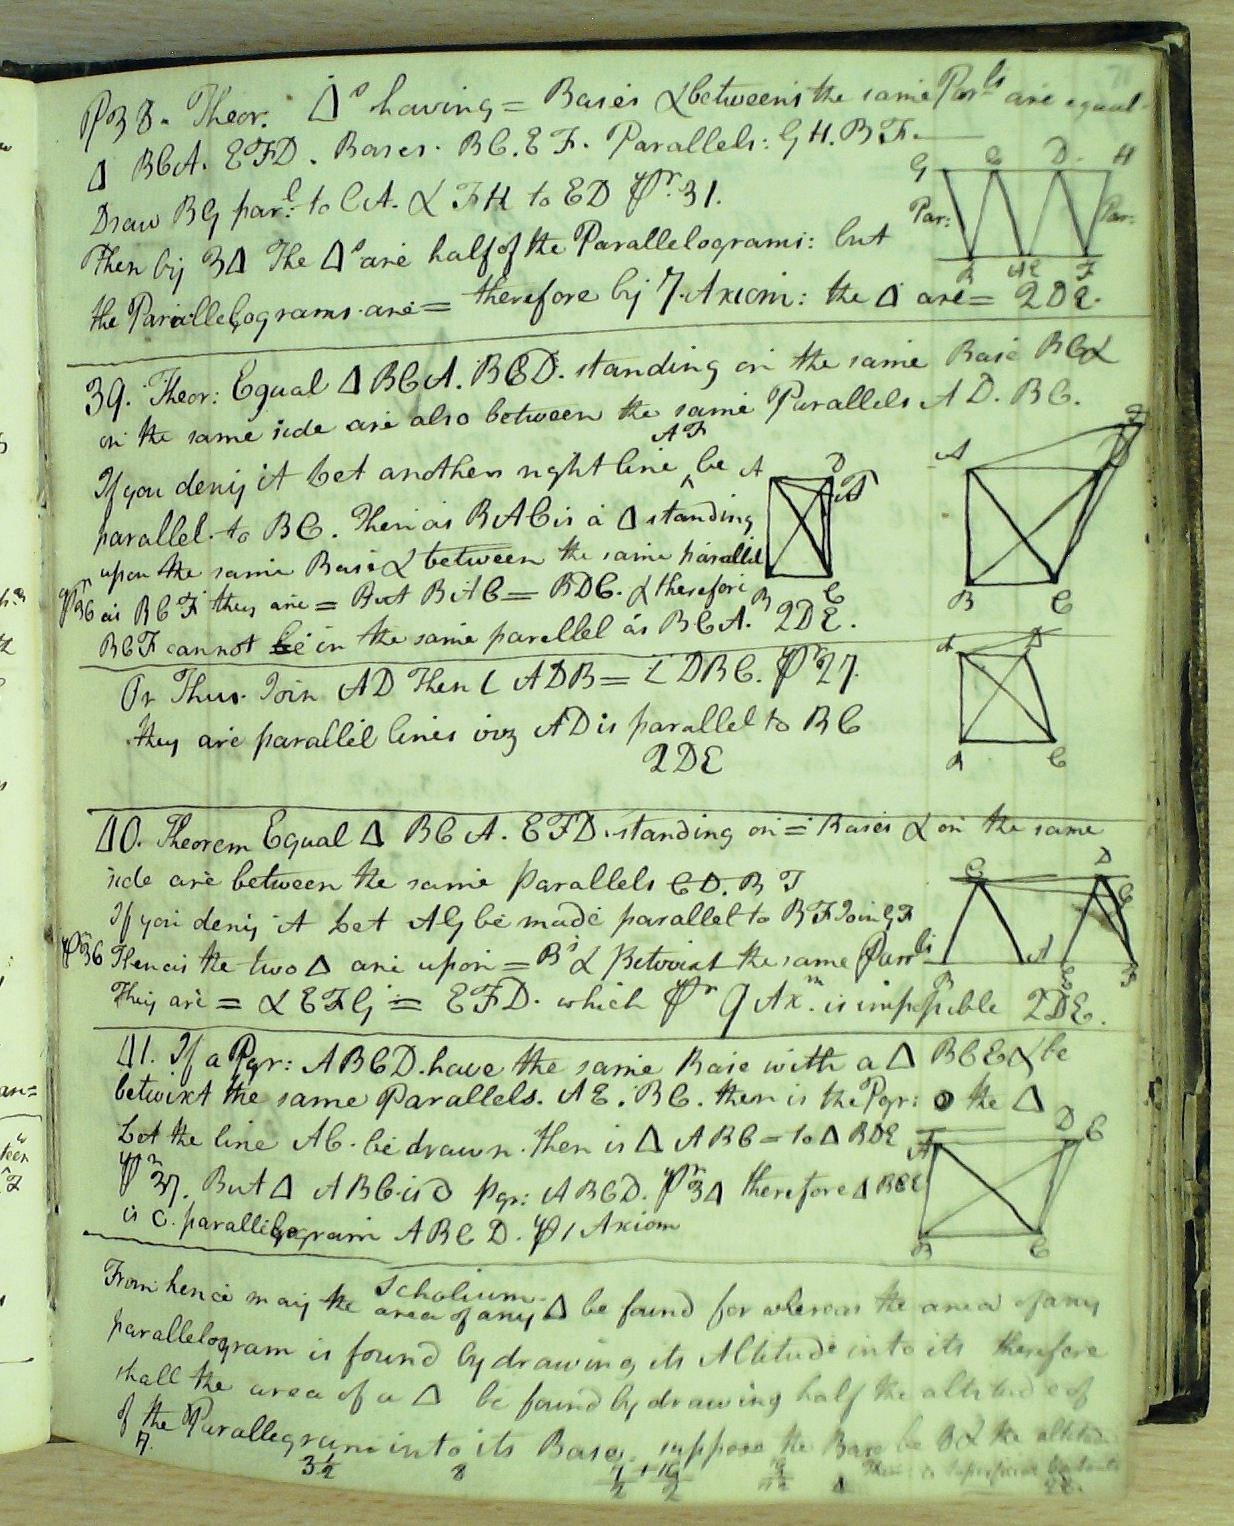 P38. Theor. Δs having = Bases & between's the same Parls are equal
Δ BCA. EFD. Bases. BC. EF. Parallels: GH. BF.
Draw BG parl: to CA. & FH to ED Pr. 31.
Then by 34 The Δs are half of the Parallelograms: but
the Parallelograms are = therefore by 7. Axiom: the Δ are = QDE.
G C D H
Par: Par:
B AE F
39. Theor: Equal Δ BCA. BCD. standing on the same Base BC &
on the same side are also between the same Parallels AD. BC.
AF
If you deny it Let another right line ^ be
parallel to BC. Then as BAC is a Δ standing
upon the same Base & between the same parallel
Pr 36 as BCF they are = But BAC = BDC. & therefore
BCF cannot be in the same parallel as BCA. QDE.
A D F
B C
A F D
B C
Or Thus. Join AD Then ∠ ADB = ∠ DBC. Pr 27.
they are parallel lines viz AD is parallel to BC
QDE
A D
B C
40. Theorem Equal Δ BCA. EFD. standing on = Bases & on the same
side are between the same parallels CD. BF
If you deny it Let AG be made parallel to BF Join GF
Pr 36 Then as the two Δ are upon = Bs & Betwixt the same Parrls
They are = & EFG = EFD. which Pr 9 Axm. is impossible QDE.
C D G
B A E F
41. If a Pgr: ABCD. have the same Base with a Δ BCE & be
betwixt the same Parallels. AE. BC. then is the Pgr: the Δ
Let the line AC. be drawn. then is Δ ABC = to Δ BDE
Pr 37. But Δ ABC is pgr: ABCD. Pr 34 therefore Δ BCE
is parallelogram ABCD. P 1 Axiom
A D E
B C
Scholium
From hence may the area of any Δ be found for whereas the area of any
parallelogram is found by drawing its Altitude into its therefore
shall the area of a Δ be found by drawing half the altitude of
of the Parallegram into its Base. suppose the Base be 8 & the altitude
7. 3½ 8